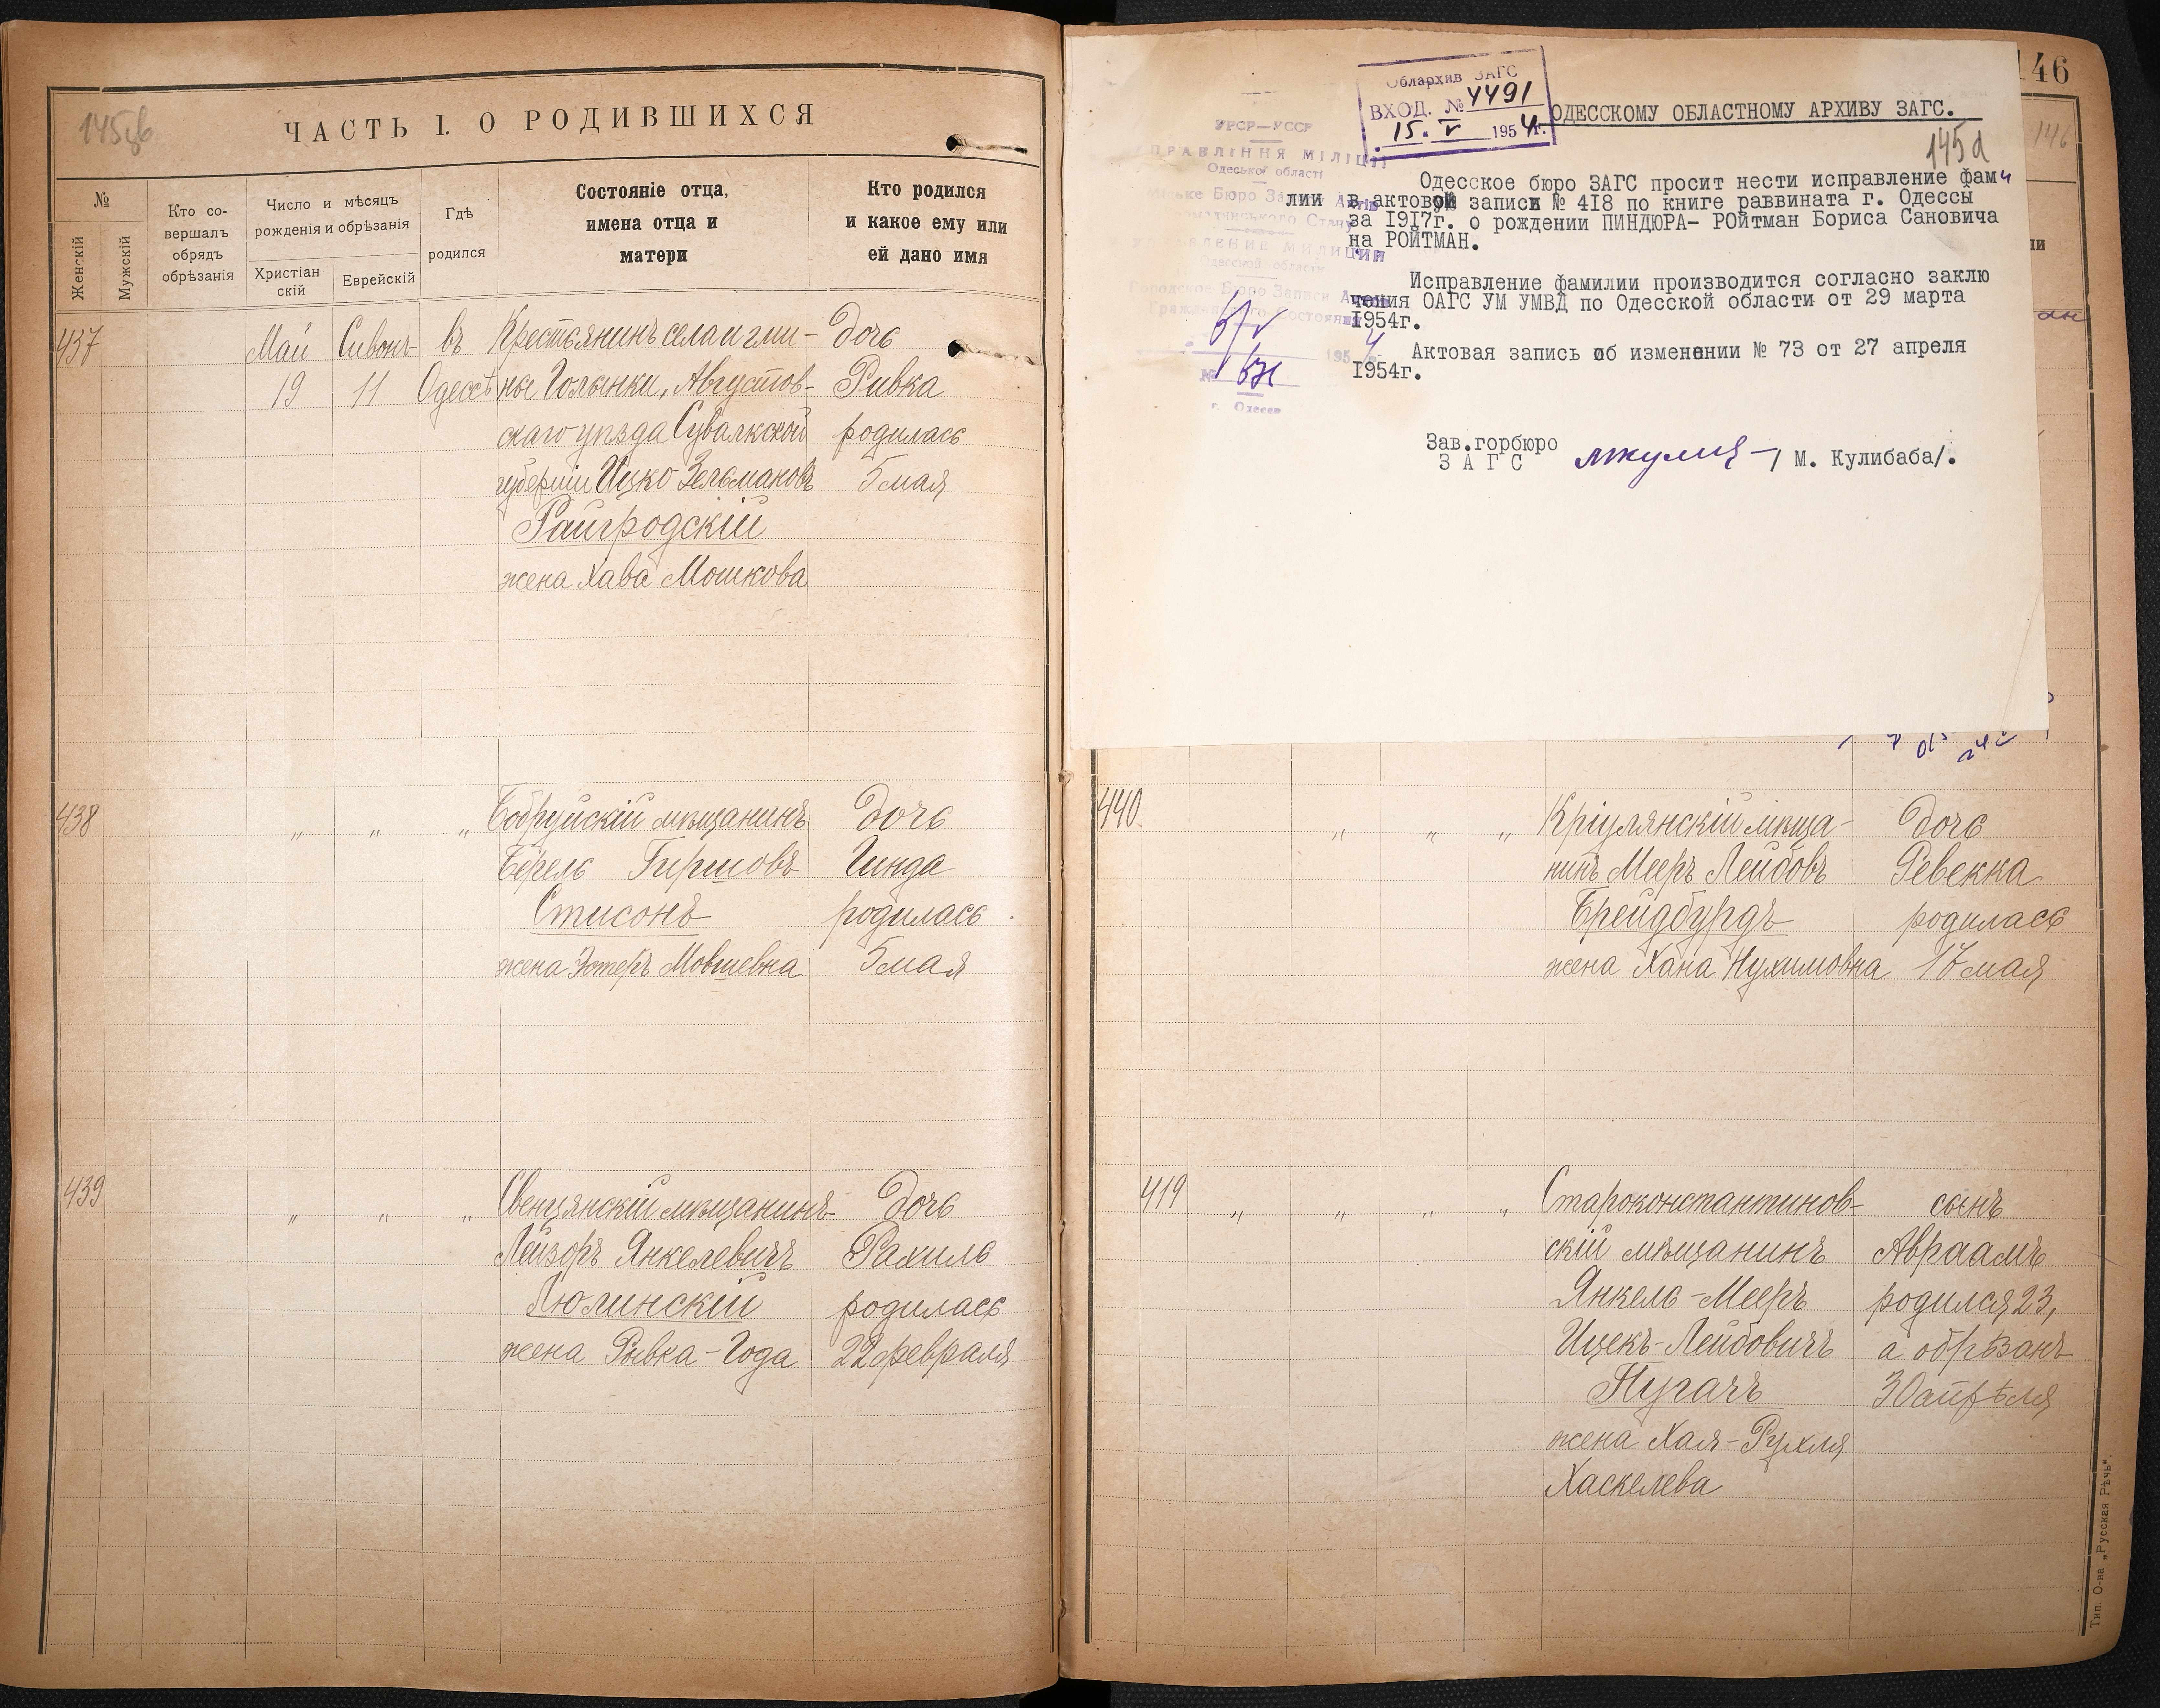 145об
ЧАСТЬ I. О РОДИВШИХСЯ
№
Женскій
Мужскій
Кто со-
вершалъ
обрядъ
обрѣзанія
Число и мѣсяцъ
рожденія и обрѣзанія
Христіан
скій
Еврейскій
Гдѣ
родился
Состояніе отца,
имена отца и
матери
Кто родился
и какое ему или
ей дано имя
437
Май
19
Сивонъ
11
въ
Одессѣ
Крестьянинъ села
Голынки, Августов-
скаго уѣзда Сувалкской
губерніи Ицко Зельмановъ
Райгродскій
жена Хава Мошкова
дочь
Ривка
родилась
5 мая
438
" " "
Бобруйскій мѣщанинъ
Берель Гиршовъ
Стисонъ
жена Эстеръ Мовшевна
дочь
Гинда
родилась
5 мая
439
" " "
Свенцянскій мѣщанинъ
Лейзоръ Янкелевичъ
Люлинскій
жена Рывка-Года
дочь
Рахиль
родилась
22 февраля
146
146
Облархив ЗАГС
ВХОД. № 4491
15. V 1954г.
ОДЕССКОМУ ОБЛАСТНОМУ АРХИВУ ЗАГС.
145а
УРСР—УССР
УПРАВЛІННЯ МІЛІЦІЇ
Одеської області
Міське Бюро Записів Актів
Громадянського Стану
УПРАВЛЕНИЕ МИЛИЦИИ
Одесской области
Городское Бюро Записи Актов
Гражданского Состояния
1954 г.
№
г. Одесса
Одесское бюро ЗАГС просит нести исправление фами
лии в актовой записи № 418 по книге раввината г. Одессы
за 1917г. о рождении ПИНДЮРА- РОЙТМАН Бориса Сановича
на РОЙТМАН.
Исправление фамилии производится согласно заклю
чения ОАГС УМ УМВД по Одесской области от 29 марта
1954г.
Актовая запись об изменении № 73 от 27 апреля
1954г.
Зав.горбюро
ЗАГС
/ М. Кулибаба/.
440
" " "
Кріулянскій мѣща-
нинъ Мееръ Лейбовъ
Брейдбурдъ
жена Хана Нухимовна
дочь
Ревекка
родилась
17 мая
419
" " " "
Староконстантинов-
скій мѣщанинъ
Янкель-Мееръ
Ицекъ-Лейбовичъ
Пугачъ
жена Хая-Рухля
Хаскелева
сынъ
Авраамъ
родился 23,
а обрѣзанъ
30 апрѣля
Тип. О-ва „Русская Рѣчь“.